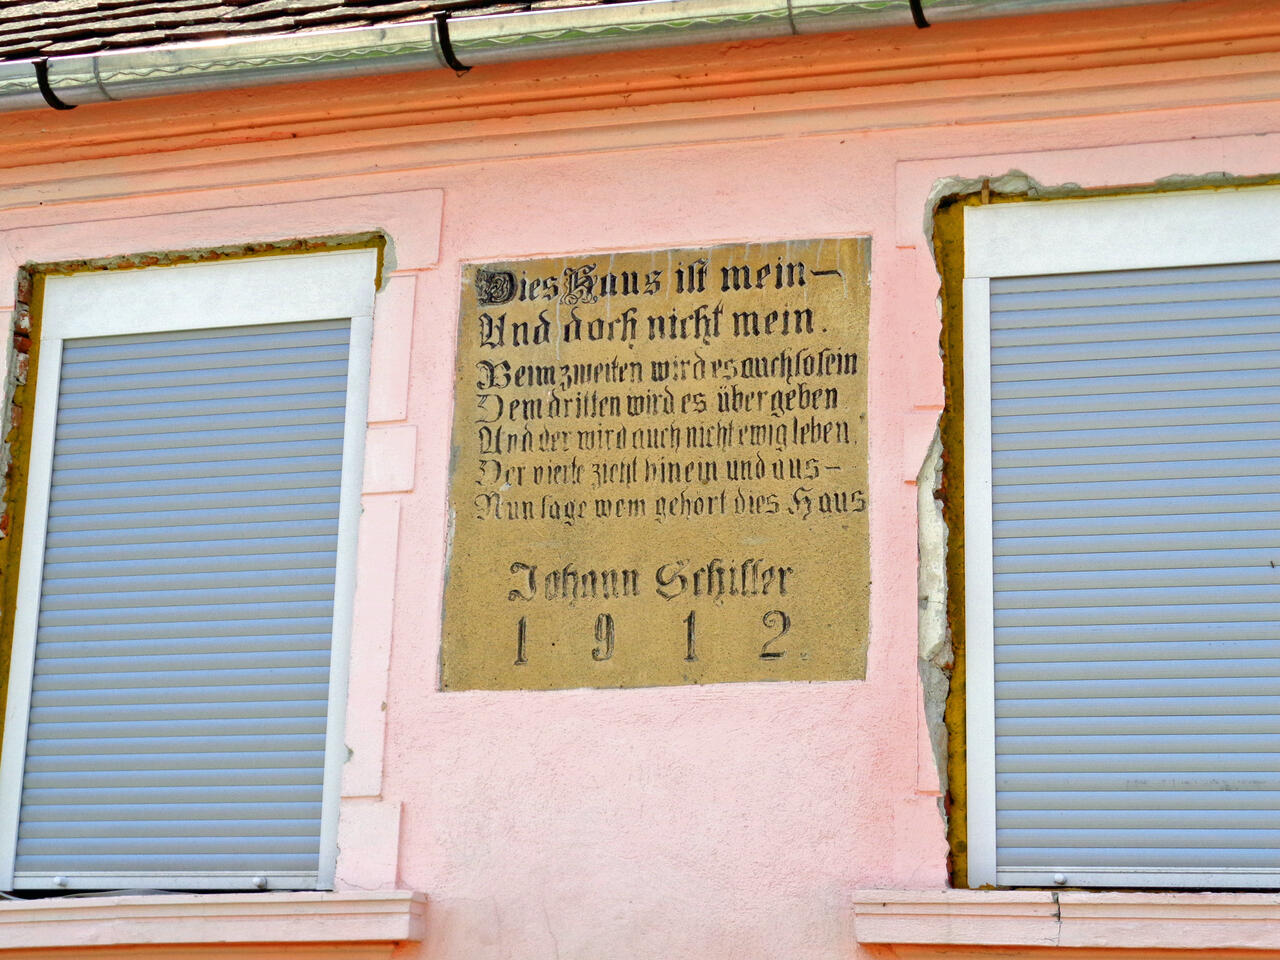 Dies Haus ist mein–
Und doch nicht mein.
Beim zweiten wird es auch so sein
Dem dritten wird es übergeben
Und der wird auch nicht ewig leben.
Der vierte zieht hinein und aus–
Nun sage wem gehört dies Haus
Johann Schiller
1912.